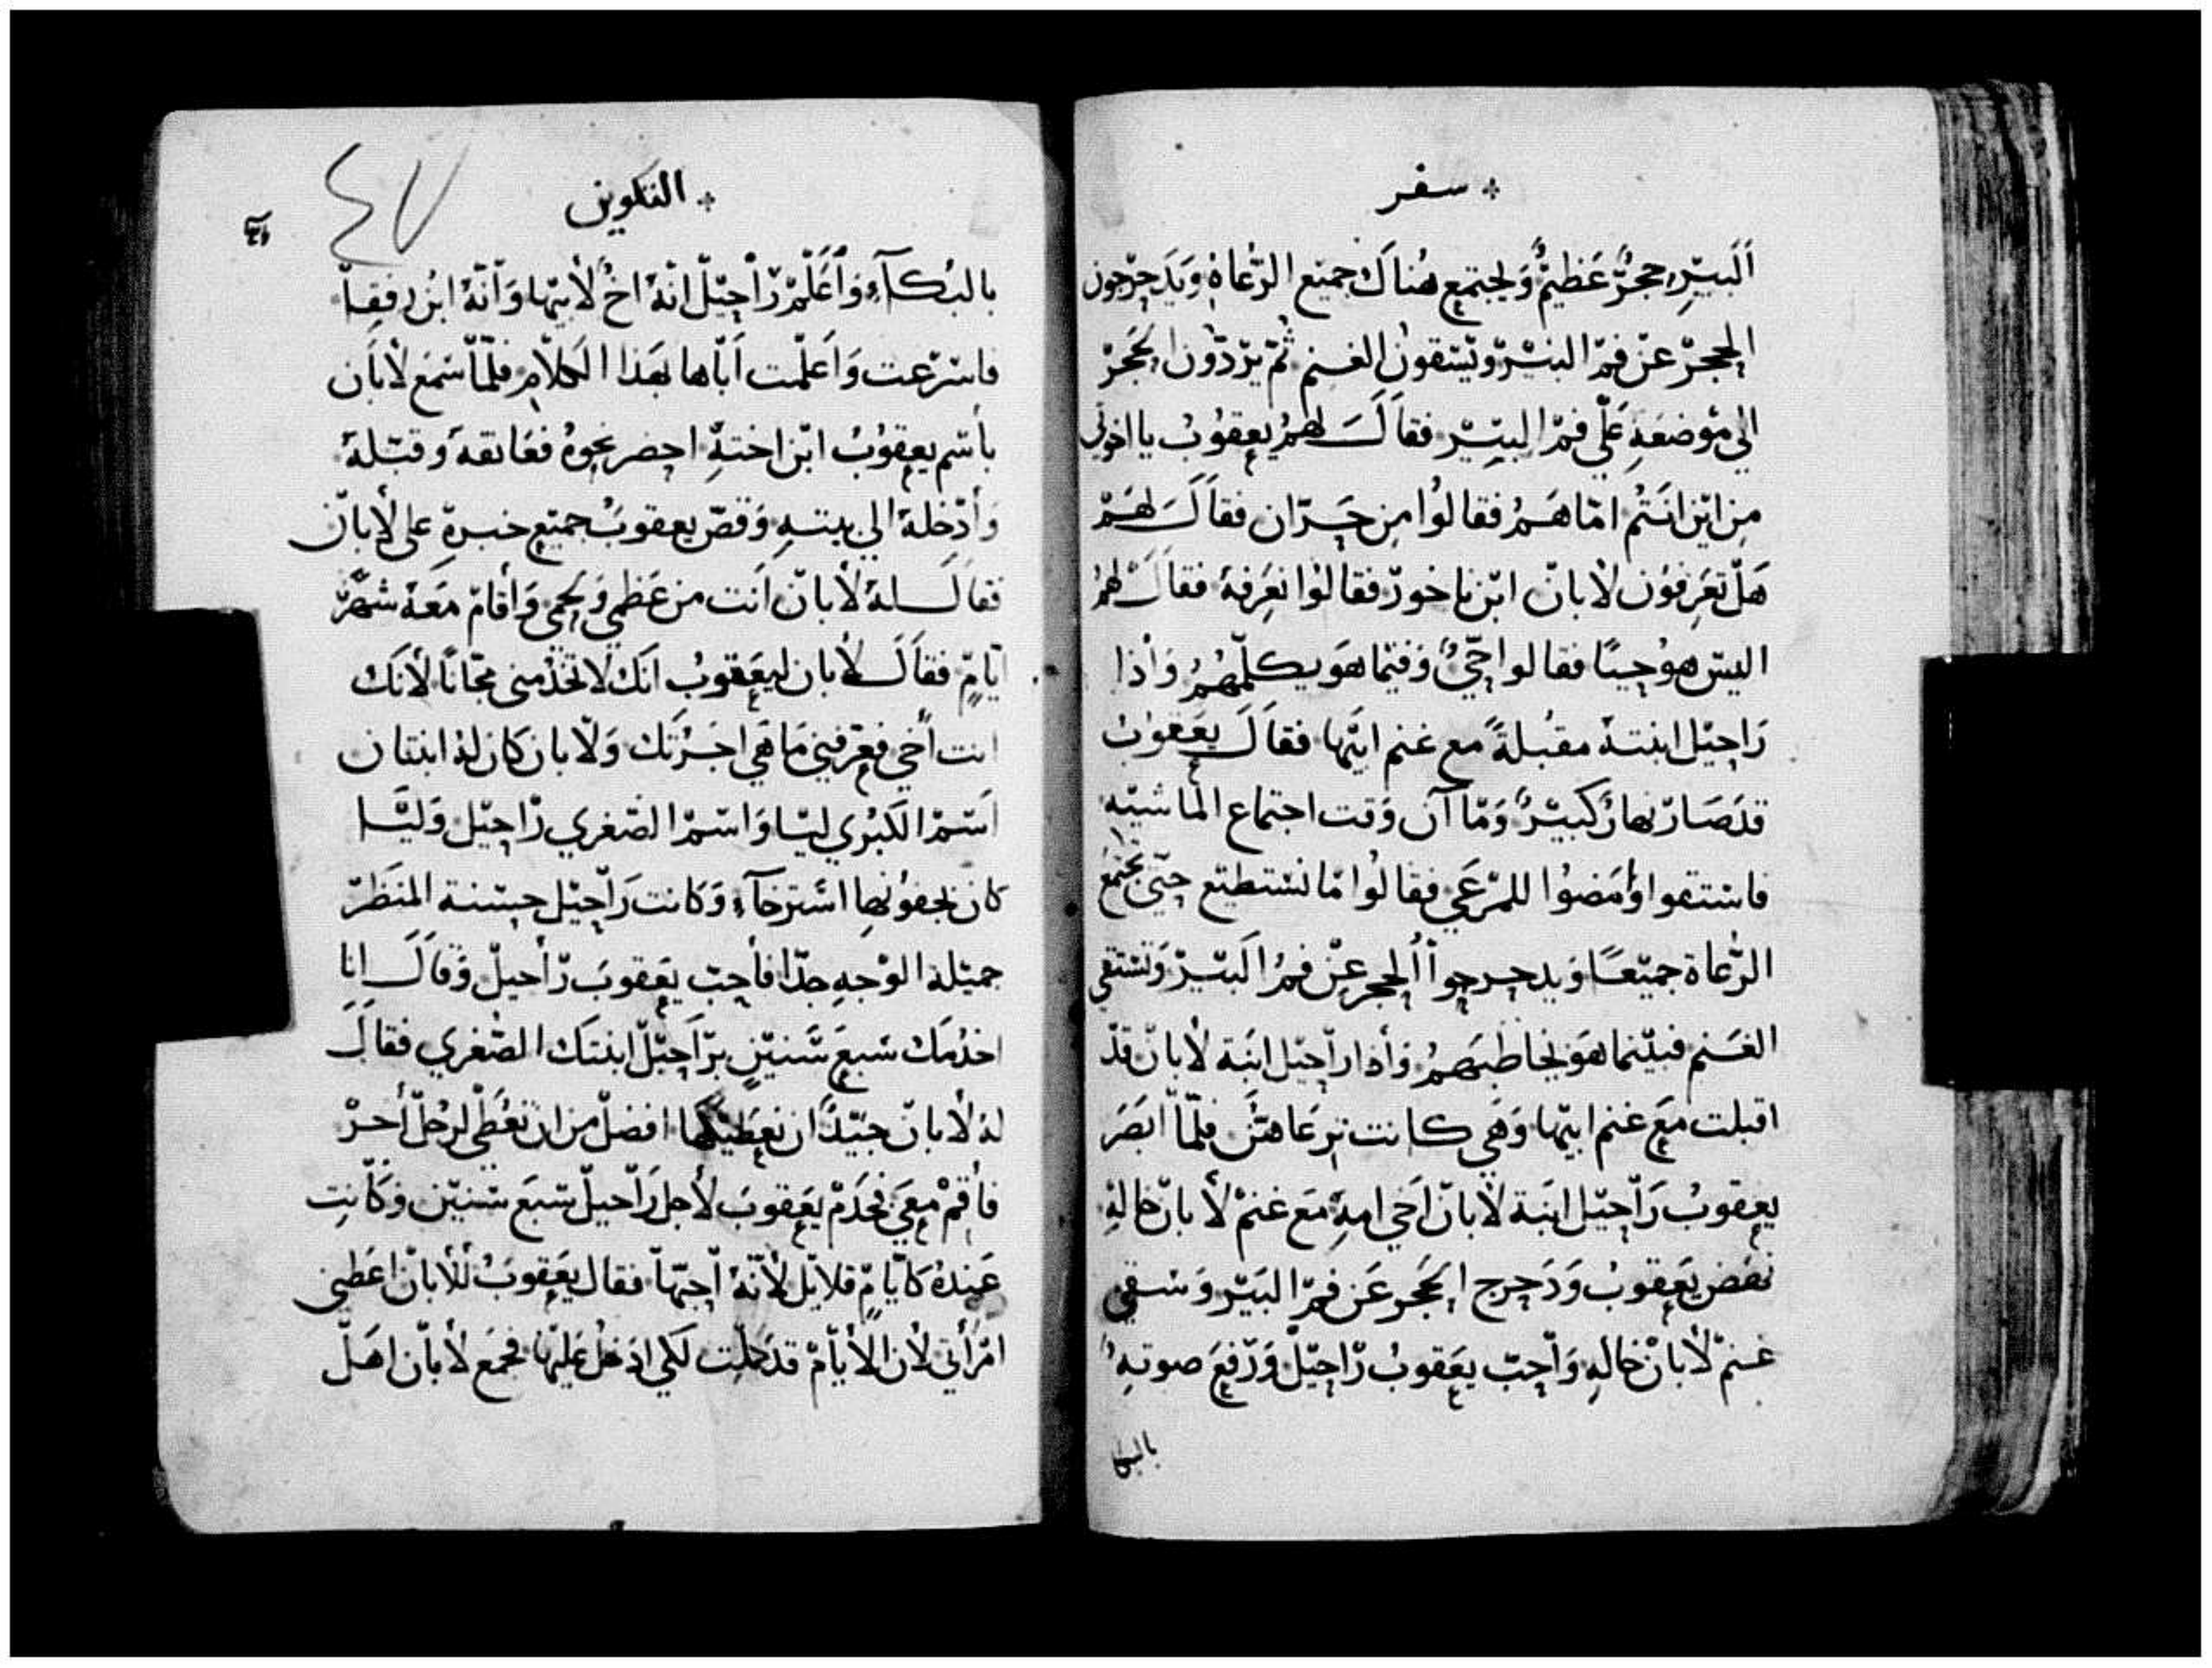 سفر
البير حجر عظيم ويجتمع هناك جميع الرعاه ويدحرجون
الحجر عن فم البير ويسقون الغنم ثم يردون الحجر
الي موضعه علي فم البير فقال لهم يعقوب يا اخوتي
من اين انتم اما هم فقالوا من حران فقال لهم
هل تعرفون لابان ابن ناخور فقالوا نعرفه فقال لهم
اليس هو حيا فقالوا حي وفيما هو يكلمهم واذا
راحيل ابنته مقبلة مع غنم ابيها فقال يعقوب
قد صار نهار كبير وما آن وقت اجتماع الماشيه
فاستقوا وامضوا للمرعي فقالوا ما نستطيع حتي تجتمع
الرعاة جميعا ويدحرجوا الحجر عن فم البير ونسقي
الغنم فبينما هو يخاطبهم واذا راحيل ابنة لابان قد
اقبلت مع غنم ابيها وهي كانت ترعاهن فلما ابصر
يعقوب راحيل ابنة لابان اخي امه مع غنم لابان خاله
نهض يعقوب ودحرج الحجر عن فم البير وسقي
غنم لابان خاله واحب يعقوب راحيل ورفع صوته
بالبكا
التكوين
٤٧
بالبكآء واعلم راحيل انه اخ لابيها وانه ابن رفقا
فاسرعت واعلمت اباها بهذا الكلام فلما سمع لابان
باسم يعقوب ابن اخته احضر نحوه فعانقه وقبله
وادخله الي بيته وقص يعقوب جميع خبره علي لابان
فقال له لابان انت من عظمي ولحمي واقام معه شهر
ايام فقال لابان ليعقوب انك لا تخدمني مجانا لانك
انت اخي فعرفني ما هي اجرتك ولابان كان له ابنتان
اسم الكبري ليا واسم الصغري راحيل وليا
كان بجفونها استرخآء وكانت راحيل حسنة المنظر
جميلة الوجه جدا فاحب يعقوب راحيل وقال انا
اخدمك سبع سنين براحيل ابنتك الصغري فقال
له لابان جيدا ان نعطيكها افضل من ان تعطي لرجل اخر
فاقم معي فخدم يعقوب لاجل راحيل سبع سنين وكانت
عنده كايام قلايل لانه احبها فقال يعقوب للابان اعطني
امراتي لان الايام قد كملت لكي ادخل عليها فجمع لابان اهل